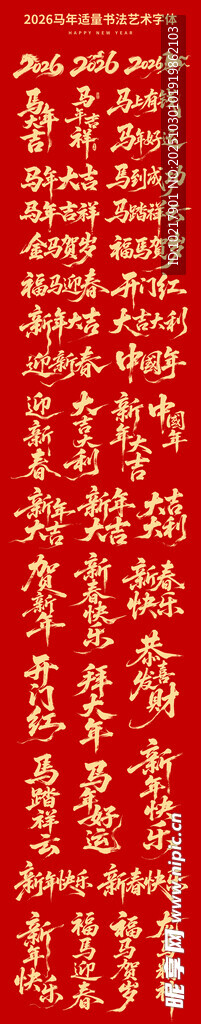 2026马年适量书法艺术字体
HAPPY NEW YEAR
2026 2026 2026
马年大吉
马年吉祥
马上有钱
马年好运
马年大吉 马到成功
马年吉祥 马踏祥云
金马贺岁 福马贺岁
福马迎春 开门红
新年大吉 大吉大利
迎新春 中國年
迎新春
大吉大利
新年大吉
中國年
新年大吉
新年大吉
大吉大利
贺新年
新春快乐
新春快乐
恭喜发财
开门红
拜大年
新年快乐
马踏祥云
马年好运
新年快乐 新春快乐
新年快乐
福马迎春
福马贺岁
ID:10217901 NO:20251030101919862103
昵享网 www.nipic.cn